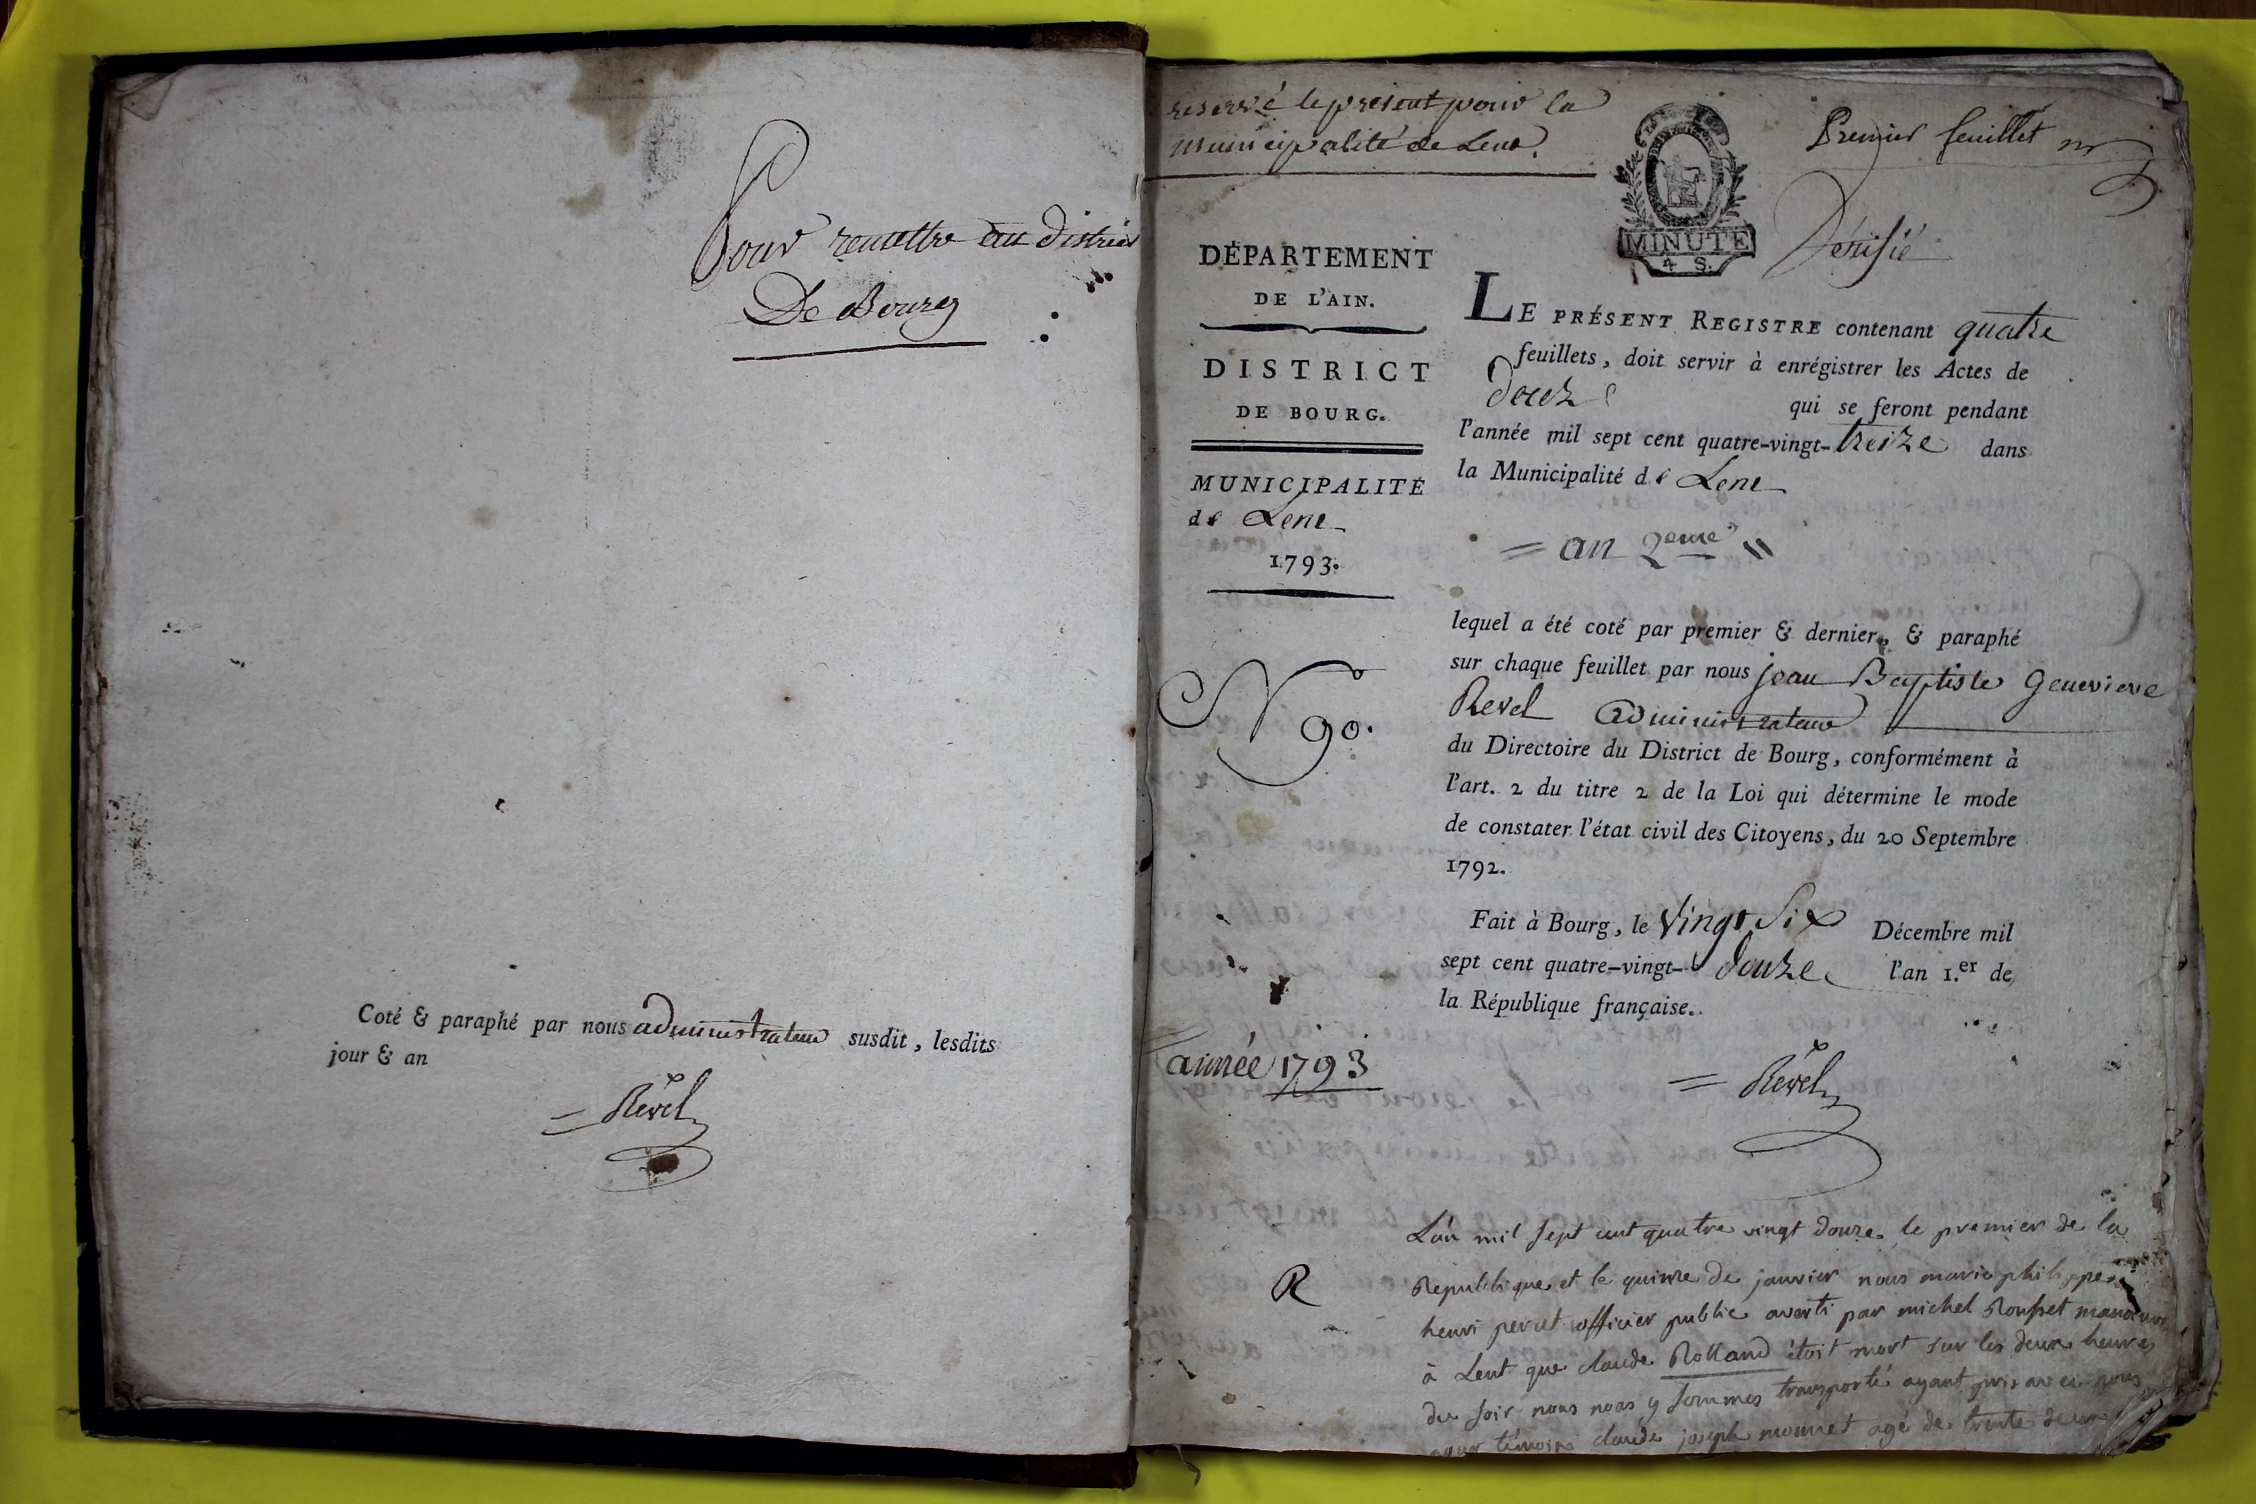 Pour remettre au district
De Bourg
Coté & paraphé par nous administrateur susdit, lesdits
jour & an
Revel
reservé le présent pour la
municipalité de Lent.
Premier feuillet
MINUTE
4 S.
DÉPARTEMENT
DE L'AIN.
DISTRICT
DE BOURG.
MUNICIPALITÉ
de Lent
1793.
N 90.
année 1793
R
LE PRÉSENT REGISTRE contenant quatre
feuillets, doit servir à enrégistrer les Actes de
qui se feront pendant
l'année mil sept cent quatre-vingt-treize dans
la Municipalité de Lent
= an 2eme =
lequel a été coté par premier & dernier, & paraphé
sur chaque feuillet par nous jean Baptiste Genevieve
Revel administrateur
du Directoire du District de Bourg, conformément à
l'art. 2 du titre 2 de la Loi qui détermine le mode
de constater l'état civil des Citoyens, du 20 Septembre
1792.
Fait à Bourg, le vingt six Décembre mil
sept cent quatre-vingt-douze l'an 1.er de
la République française.
= Revel
L'an mil sept cent quatre vingt douze le premier de la
République et le quinze de janvier nous marie philippe
henri perret officier public averti par michel Rousset
à Lent que claude Rolland étoit mort sur les deux heures
du soir nous nous y sommes transporté ayant pris avec nous
pour témoin claude joseph monnet agé de trente deux